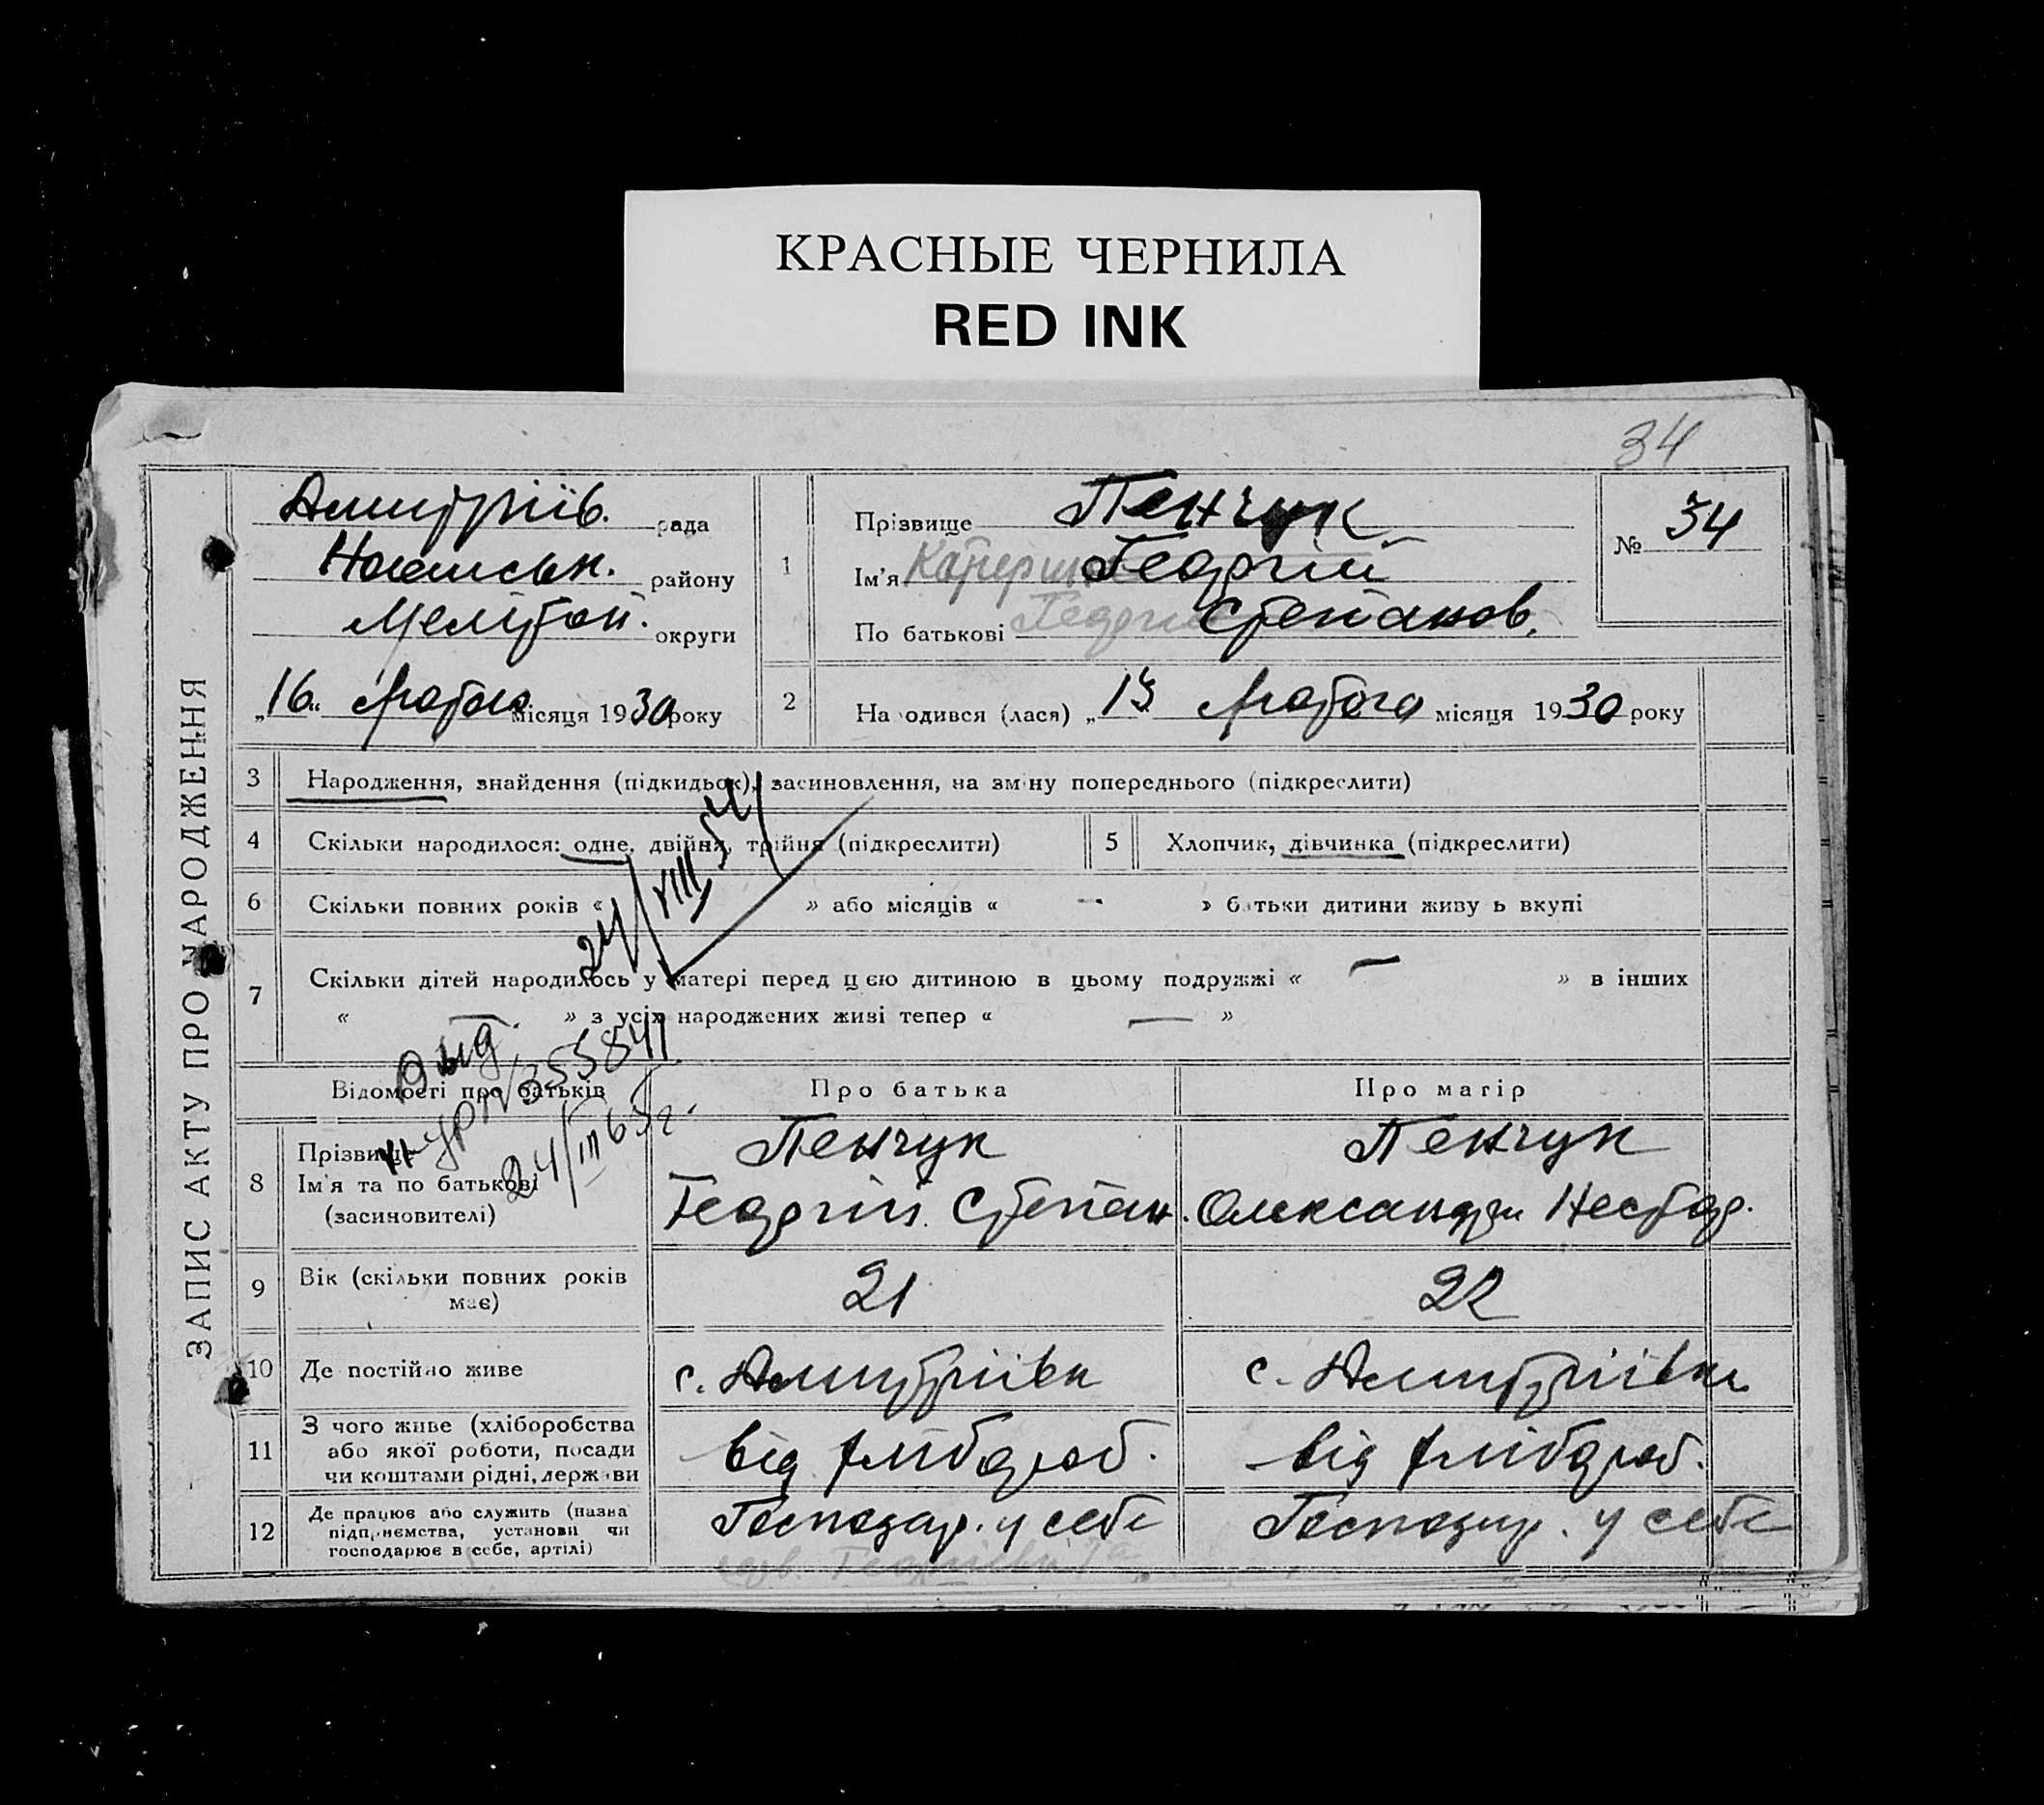 КРАСНЫЕ ЧЕРНИЛА
RED INK
34
ЗАПИС АКТУ ПРО НАРОДЖЕННЯ
Дмитріїв. рада
району
Меліtоп. округи
„16“ лютого місяця 1930 року
1
Прізвище Пенчук
Ім'я Катерина Георгій
По батькові Георгі Степанов.
№ 34
2
Народився (лася) „13 лютого місяця 1930 року
3 Народження, знайдення (підкидьок), засиновлення, на зміну попереднього (підкреслити)
4 Скільки народилося: одне, двійня, трійня (підкреслити)
5 Хлопчик, дівчинка (підкреслити)
6 Скільки повних років « » або місяців « — » батьки дитини живуть вкупі
24/VIII 54
7 Скільки дітей народилось у матері перед цією дитиною в цьому подружжі « — » в інших
« — » з усіх народжених живі тепер « — »
Выд.
355841
24/III 65г.
Відомості про батьків Про батька Про матір
8 Прізвище
Ім'я та по батькові
(засиновителі)
Пенчук
Георгій Степан.
Пенчук
Олександра Нестор.
9 Вік (скільки повних років
має)
21
22
10 Де постійно живе
с. Дмитріївка
с. Дмитріївка
11 З чого живе (хліборобства
або якої роботи, посади
чи коштами рідні, держави
від хлібороб.
від хлібороб.
12 Де працює або служить (назва
підприємства, установи чи
господарює в себе, артілі)
Господар. у себе
Господар. у себе